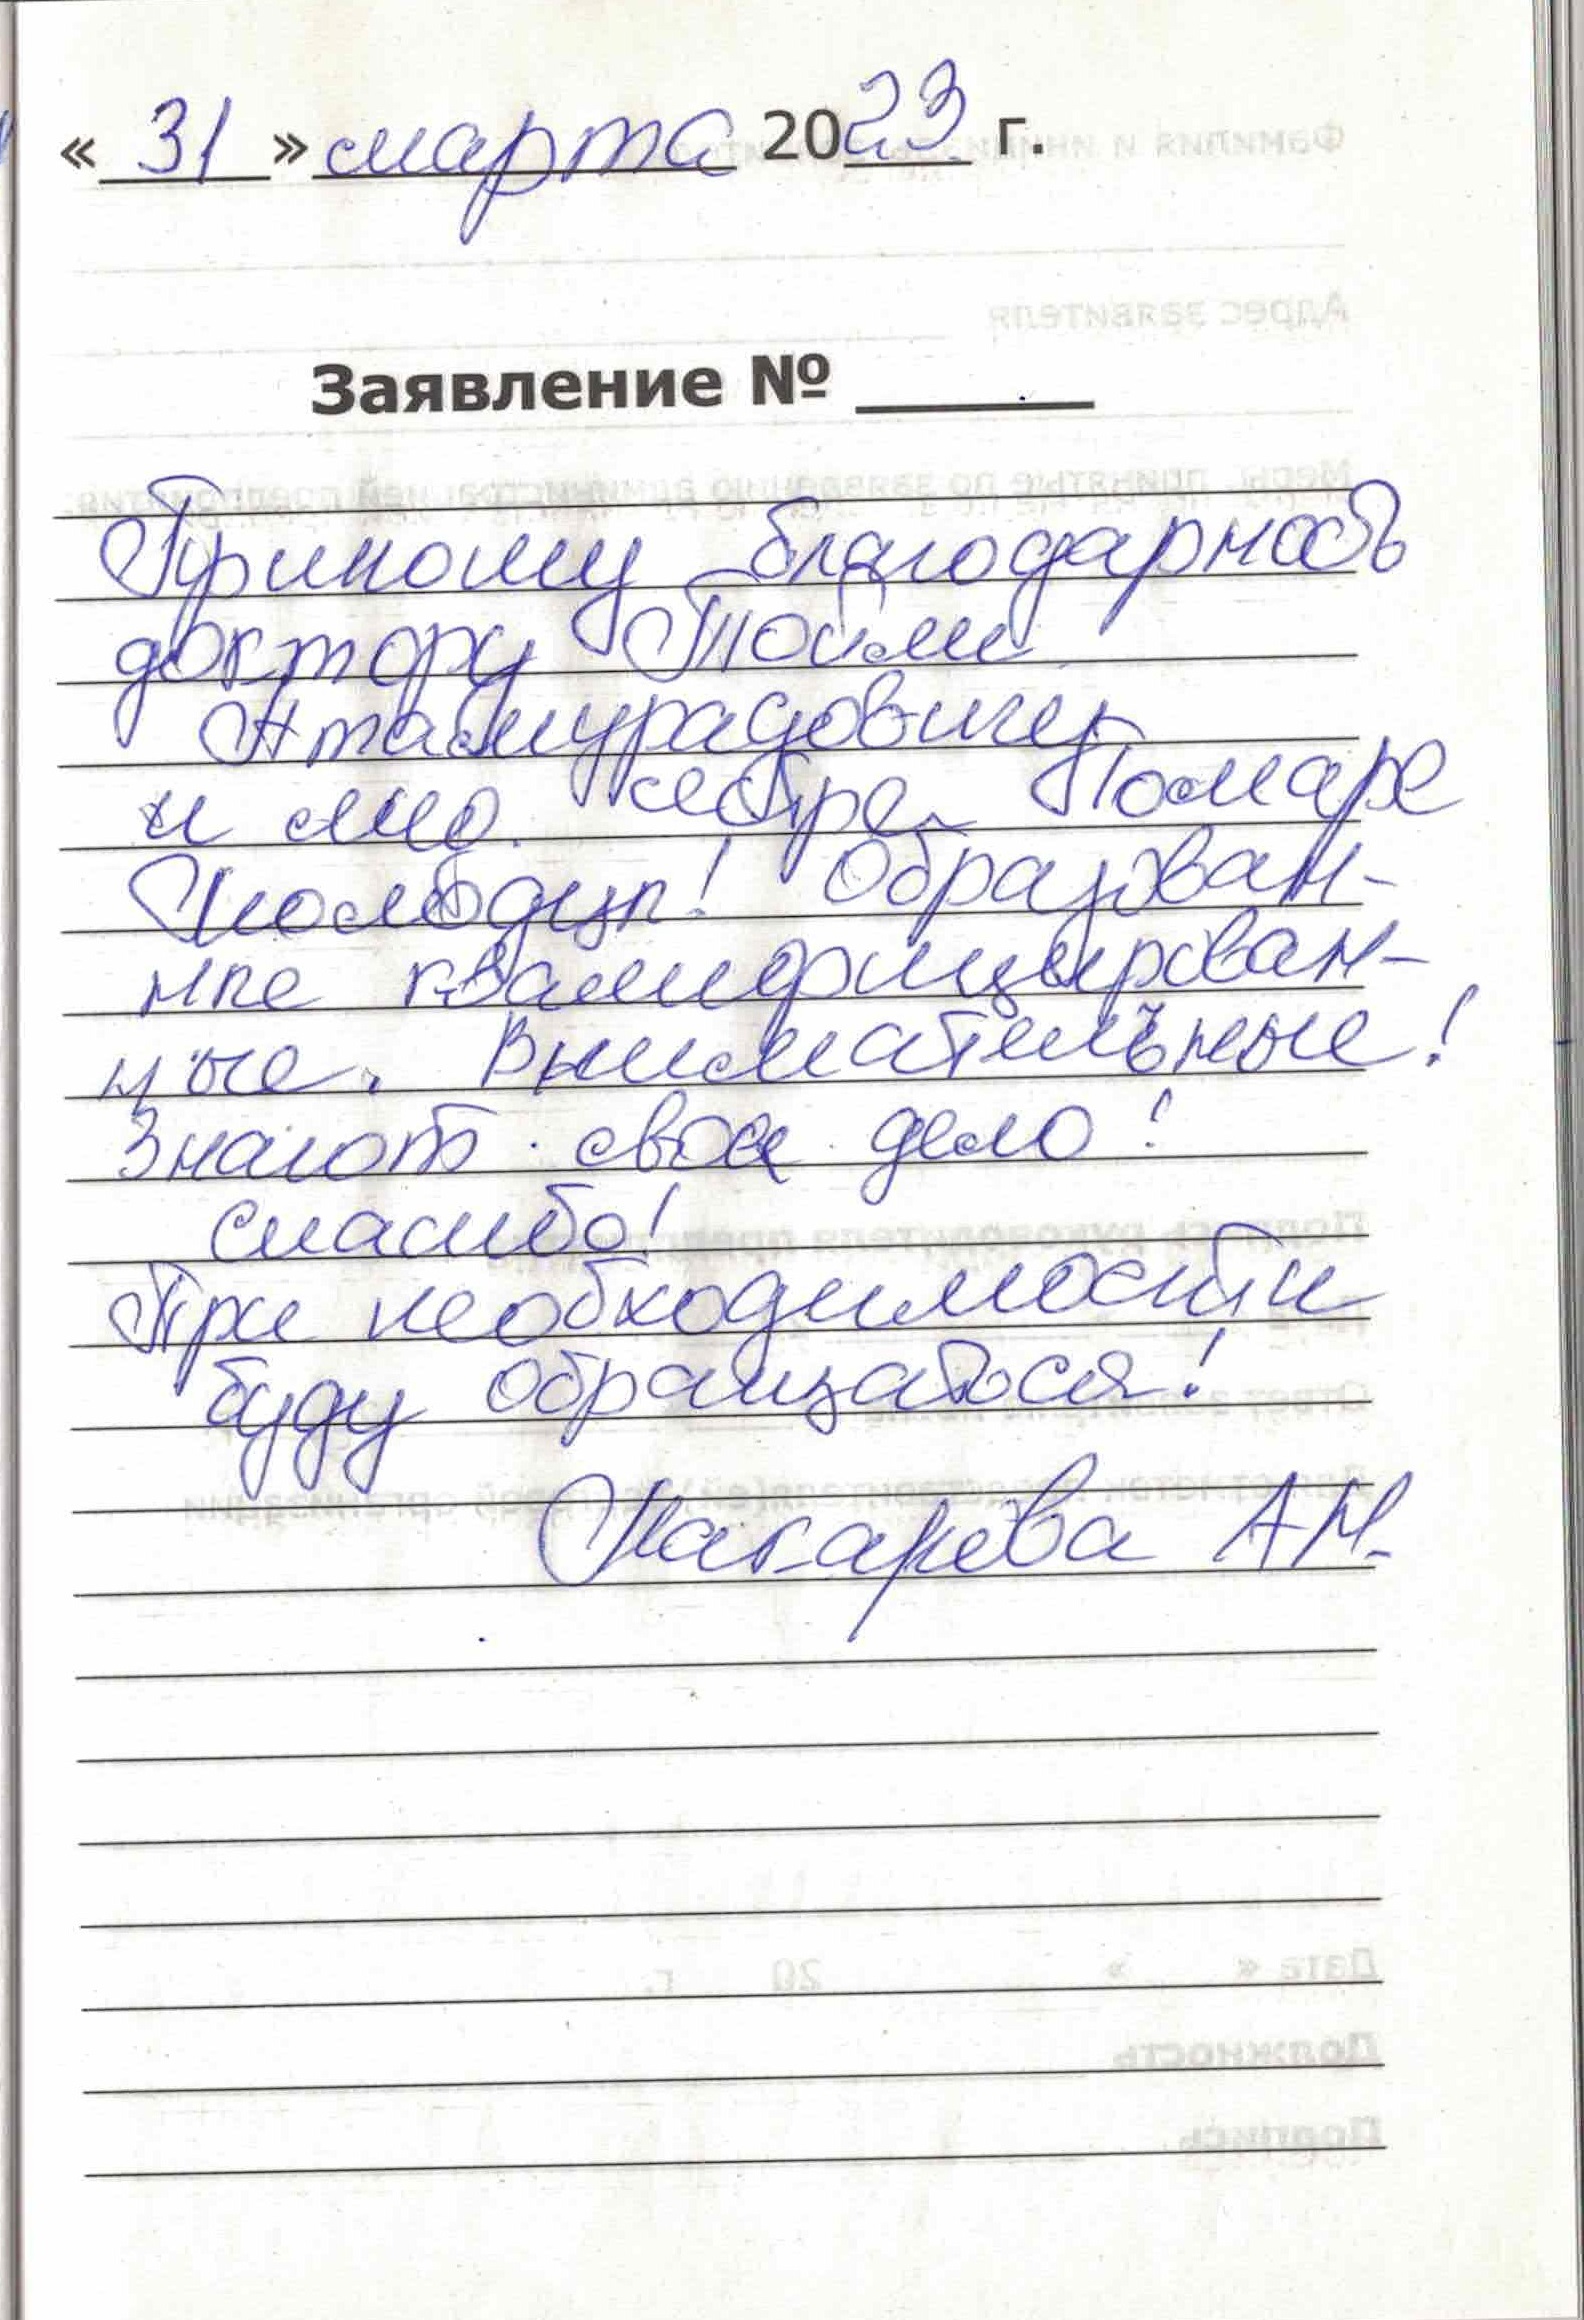 « 31 » марта 2023 г.
Заявление №
Приношу благодарность
доктору Тойли
Атамурадовичу
и мед. сестре Томаре
Молодцы! Образован-
ные квалифицирован-
ные. Внимательные!
Знают свое дело!
Спасибо!
При необходимости
буду обращаться!
Макарева А М.